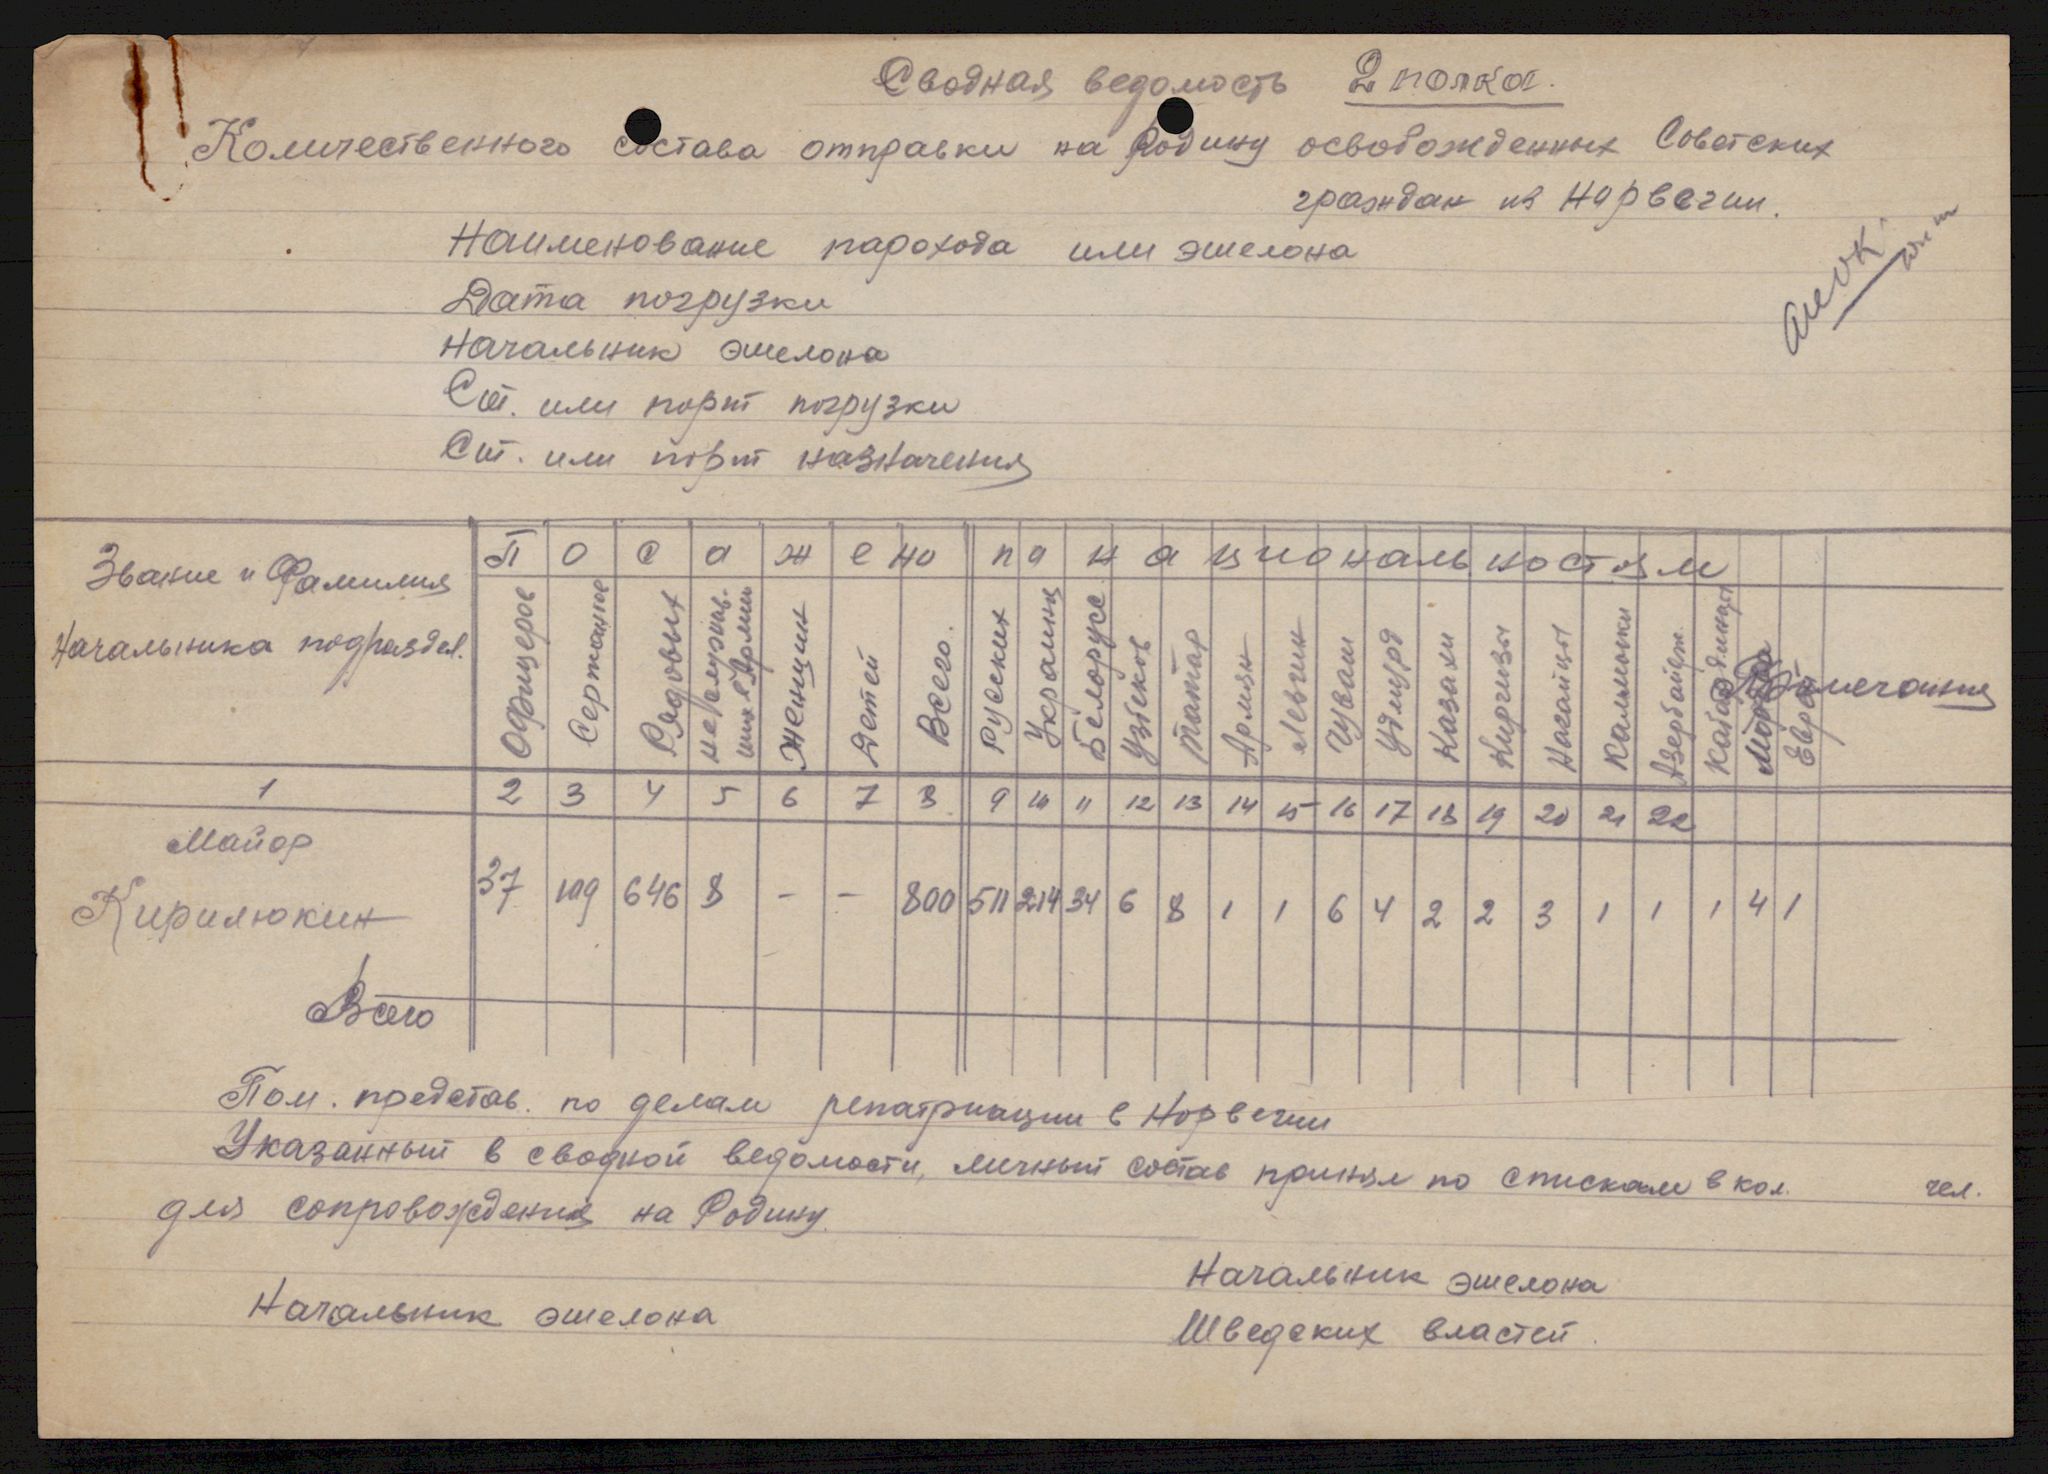 Сводная ведомость 2 полка.
Количественного состава отправки на Родину освобожденных Советских
граждан из Норвегии.
Наименование парохода или эшелона
Дата погрузки
Начальник эшелона
Ст. или порт погрузки
Ст. или порт назначения
Звание и Фамилия Начальника подраздел.
Посажено по национальностям
Офицеров Сержантов Рядовых не служив-ших в Армии Женщин Детей Всего. Русских Украинц Белорусс Узбеков Татар Армян Лезгин Чуваш Удмурд Казахи Киргизы Нагайцы Калмыки Азербайдж. Кабардинцы Мордва Евреи Примечания
1 2 3 4 5 6 7 8 9 10 11 12 13 14 15 16 17 18 19 20 21 22
Майор
Кирилюкин 37 109 646 8 – – 800 511 214 34 6 8 1 1 6 4 2 2 3 1 1 1 4 1
Всего
Пом. представ. по делам репатриации в Норвегии
Указанный в сводной ведомости, личный состав принял по спискам в кол. чел.
для сопровождения на Родину.
Начальник эшелона
Начальник эшелона
Шведских властей.